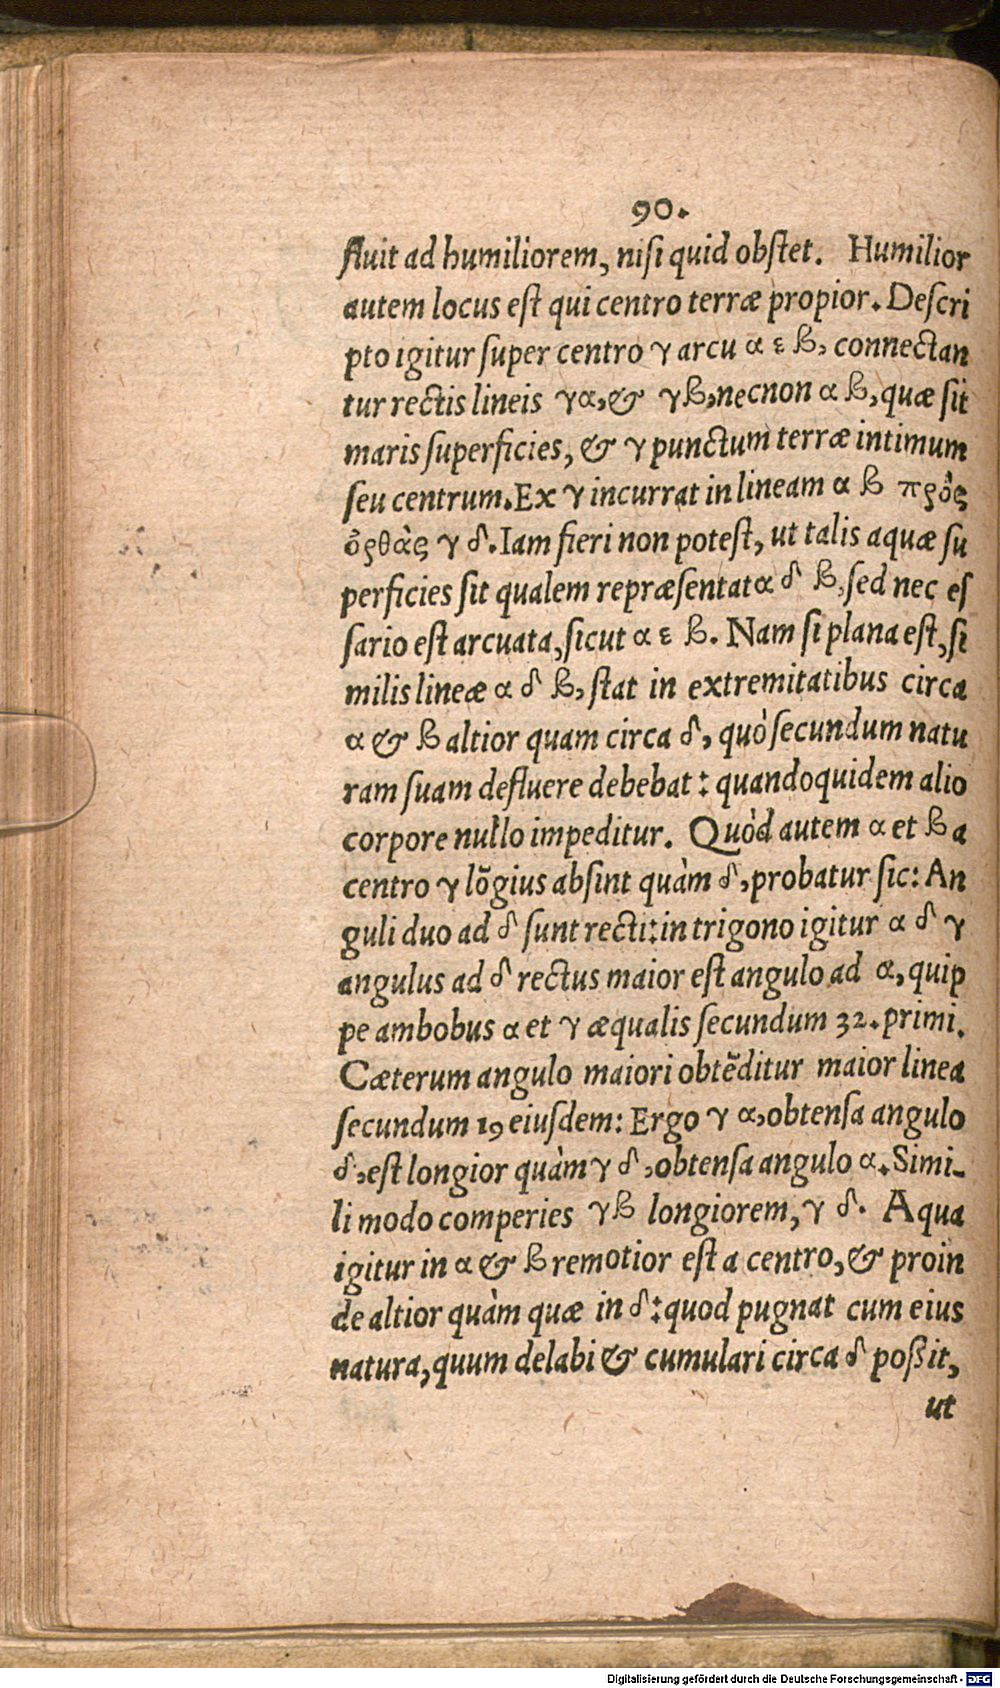 90.
fluit ad humiliorem, nisi quid obstet. Humilior
autem locus est qui centro terræ propior. Descri
pto igitur super centro γ arcu α ε β, connectan
tur rectis lineis γα, & γβ, necnon α β, quæ sit
maris superficies, & γ punctum terræ intimum
seu centrum. Ex γ incurrat in lineam α β πρὸς
ὀρθὰς γ δ. Iam fieri non potest, ut talis aquæ su
perficies sit qualem repræsentat α δ β, sed nec es
sario est arcuata, sicut α ε β. Nam si plana est, si
milis lineæ α δ β, stat in extremitatibus circa
α & β altior quam circa δ, quò secundum natu
ram suam defluere debebat: quandoquidem alio
corpore nullo impeditur. Quòd autem α et β a
centro γ lõgius absint quàm δ, probatur sic: An
guli duo ad δ sunt recti: in trigono igitur α δ γ
angulus ad δ rectus maior est angulo ad α, quip
pe ambobus α et γ æqualis secundum 32. primi.
Cæterum angulo maiori obtẽditur maior linea
secundum 19 eiusdem: Ergo γ α, obtensa angulo
δ, est longior quàm γ δ, obtensa angulo α. Simi-
li modo comperies γβ longiorem, γ δ. Aqua
igitur in α & β remotior est a centro, & proin
de altior quàm quæ in δ: quod pugnat cum eius
natura, quum delabi & cumulari circa δ poßit,
ut
Digitalisierung gefördert durch die Deutsche Forschungsgemeinschaft - DFG